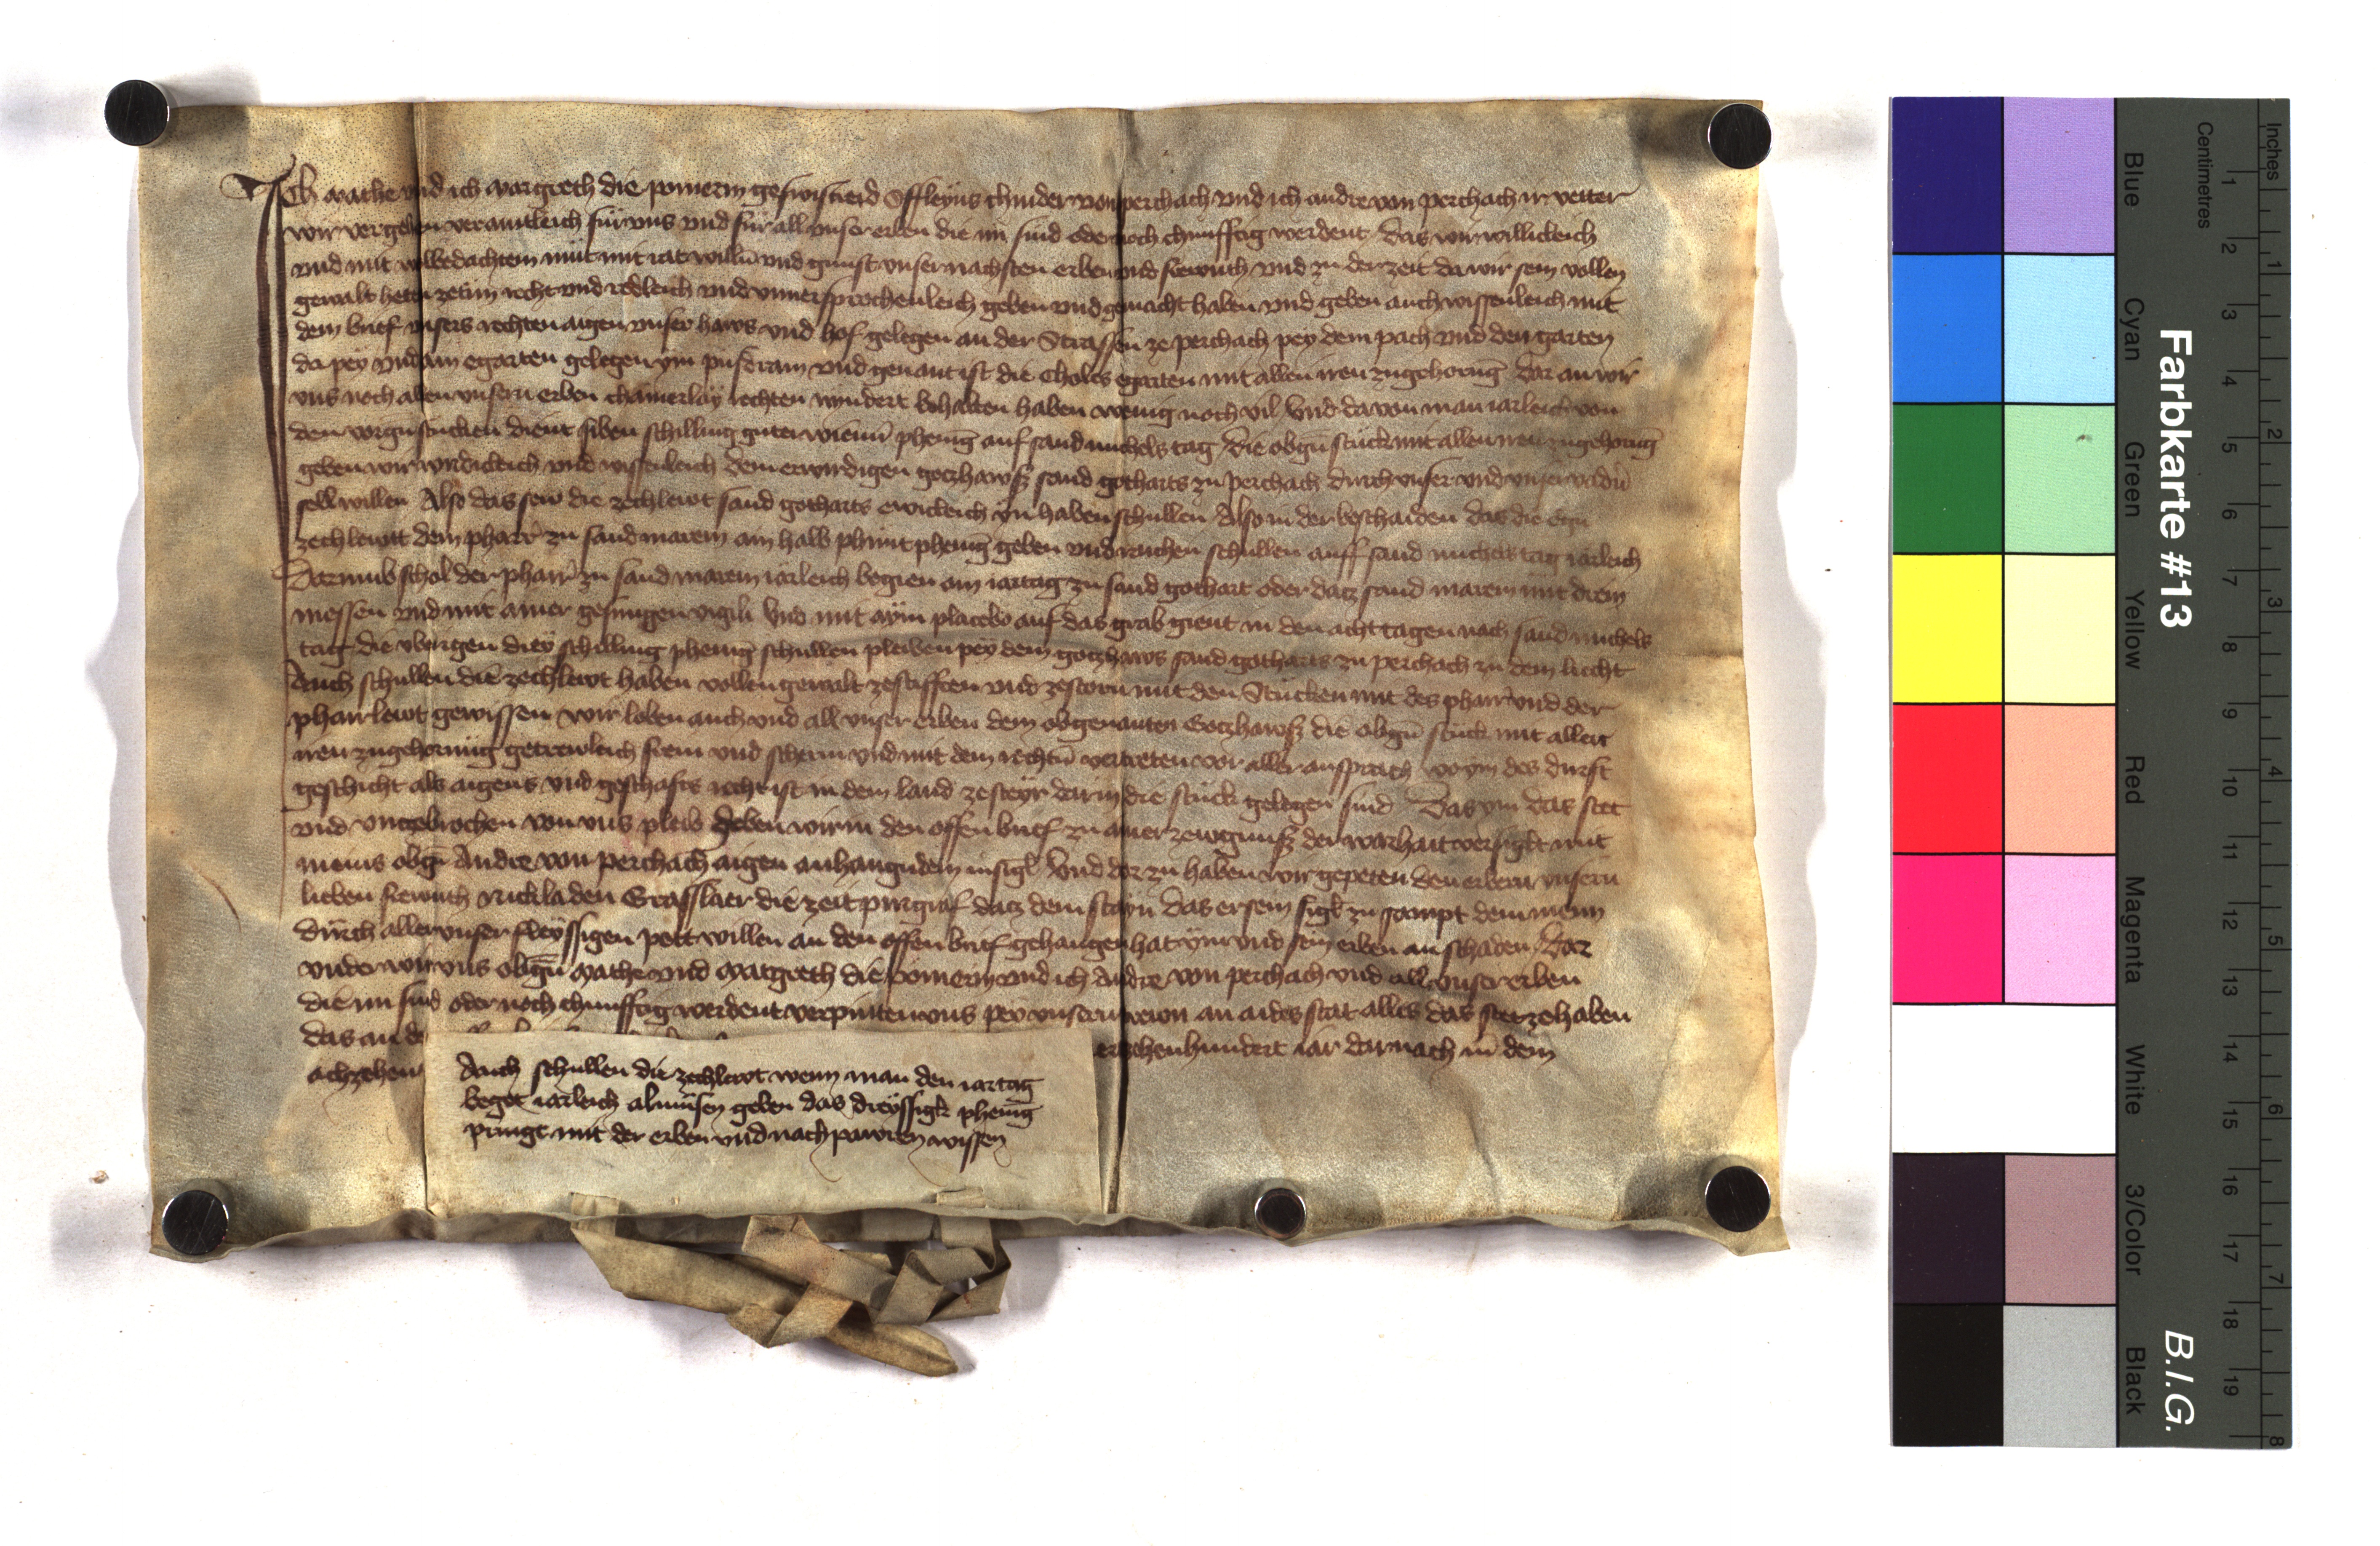 Ich mathe und ich margreth die pomerin geswistreid Offleyns chinder von perchach und ich andre von perchach ir vetter
wir vergehen veramtleich für uns und für all unser erben die nu sind oder noch chunfftig werdent das wir willicleich
und mit wolbedachtem müt mit rat willn und gunst unser nachsten erben und frewnth und zu der zeit da wir sein vollen
gewalt heten zetun recht und redleich und unversprochenleich geben und gemacht haben und geben auch wissenleich mit
dem brief unsers rechten aigen unser haws und hof gelegen an der Strassen ze perchach pey dem pach und den garten
da pey und ain egarten gelegen ym und genant ist die Choles egarten mit allen iren zugehorug dar an wir
uns noch allen unsern erben chainerlay rechten nyndert behalten haben wenig noch vil Und da von man iarleich von
den vorgn stucken dient siben schilling guter wienn phenig auf sand michels tag Die obgn stuck mit allen iren zugehorug
geben wir wirdicleich und wissenleich dem erwirdigen gotzhawsz sand gotharts zu perchach durch unser und unser vadn
sell willen Also das sew die zechlewt sand gotharts ewicleich yn haben schullen Also in der beschaiden das die egn
zechlewt dem pharr zu sand marein ain halb phunt phenig geben und raichen schullen auff sand michels tag iarleich
Darumb schol der pharr zu sand marein iarleich begien ain iartag zu sand gothart oder datz sand marein mit drein
messen und mit ainer gesungen vigili Und mit aym placebo auf das grab gient in den acht tagen nach sand michels
tag die ubrigen drey schilling phenig schullen pleiben pey dem gotzhaws sand gotharts zu perchach zu dem liecht
Auch schullen die zechlewt haben vollen gewalt zestifften und zestorn mit den Stucken mit des pharr und der
pharrlewt gewissen wir loben auch und all unser erben dem obgenanten Gotzhawsz die obgn stuck mit allen
iren zugehornug getrewleich frein und scherm und mit dem rechtn vertreten vor aller ansprach wo ym des durft
geschicht als aigens und geschafts recht ist in dem land zesteyr darin die stuck gelegen sind Das ym das stet
und untzebrochen von uns pleib Geben wir in den offen brief zu ainer zewgnusz der warhait versiglt mit
meins obgn Andre von perchach aigen anhangundem insigl Und dar zu haben wir gepeten den erbern unsern
lieben frewnth nickladen Grasslaer die zeit purgraf datz dem stayn das er sein sigl zu sampt dem meinn
durch aller unser fleyssigen pett willen an den offen brief gehangen hat ym und sein erben an schaden Dar
under wir uns obgn mathe und margreth die pomerin und ich Andre von perchach und all unser erben
die nu sind oder noch chunfftig werdent verpintten uns pey unsern trewn an aides stat alles das stet ze haben
das an de erzehenhundert iar darnach in dem
achzehen
Auch schullen die zechlewt wenn man den iartag
beget iarleich almusen geben das dreyssigk phenig
pringt mit der erben und nachpawren wissen
Farbkarte #13
B.I.G.
Blue
Cyan
Green
Yellow
Red
Magenta
White
3/Color
Black
Centimetres
1 2 3 4 5 6 7 8 9 10 11 12 13 14 15 16 17 18 19
Inches
1 2 3 4 5 6 7 8